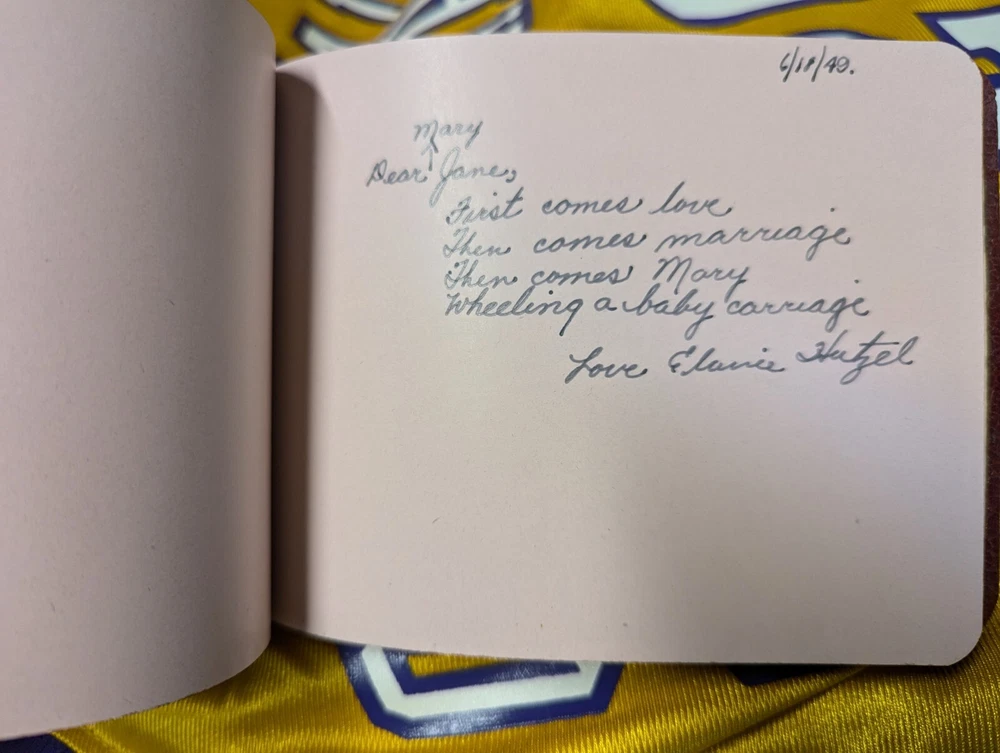 6/18/49.
Mary
Dear Jane,
First comes love
Then comes marriage
Then comes Mary
Wheeling a baby carriage
Love Elanie